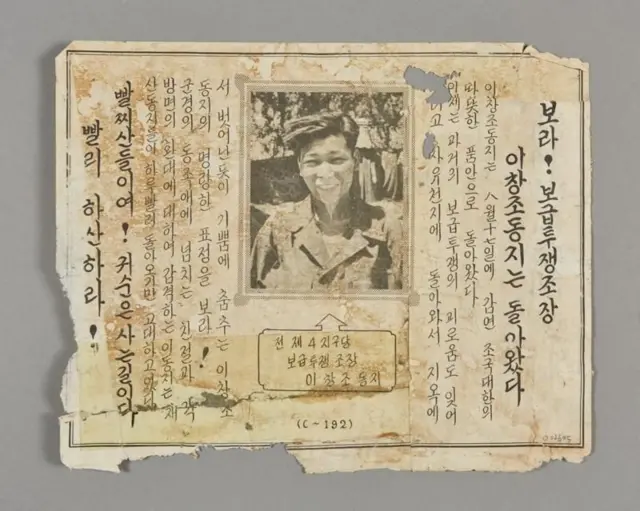 보라! 보급투쟁조장
이창조동지는 돌아왔다
이창조동지는 八월十七일에 감연 조국대한의
따뜻한 품안으로 돌아왔다
이제는 과거의 보급투쟁의 괴로움도 잊어
고 자유천지에 돌아와서 지옥에
전 제4지구당
보급투쟁 조장
이 창조 동지
(C-192)
서 벗어난듯이 기쁨에 춤추는 이창조
동지의 명랑한 표정을 보라!
군경의 동족애에 넘치는 친절과 각
방면의 환대에 대하여 감격하는 이동지는 재
산동지들이 하루빨리 돌아오기만 고대하고있다
빨찌산들이여! 귀순은 사는길이다
빨리 하산하라!